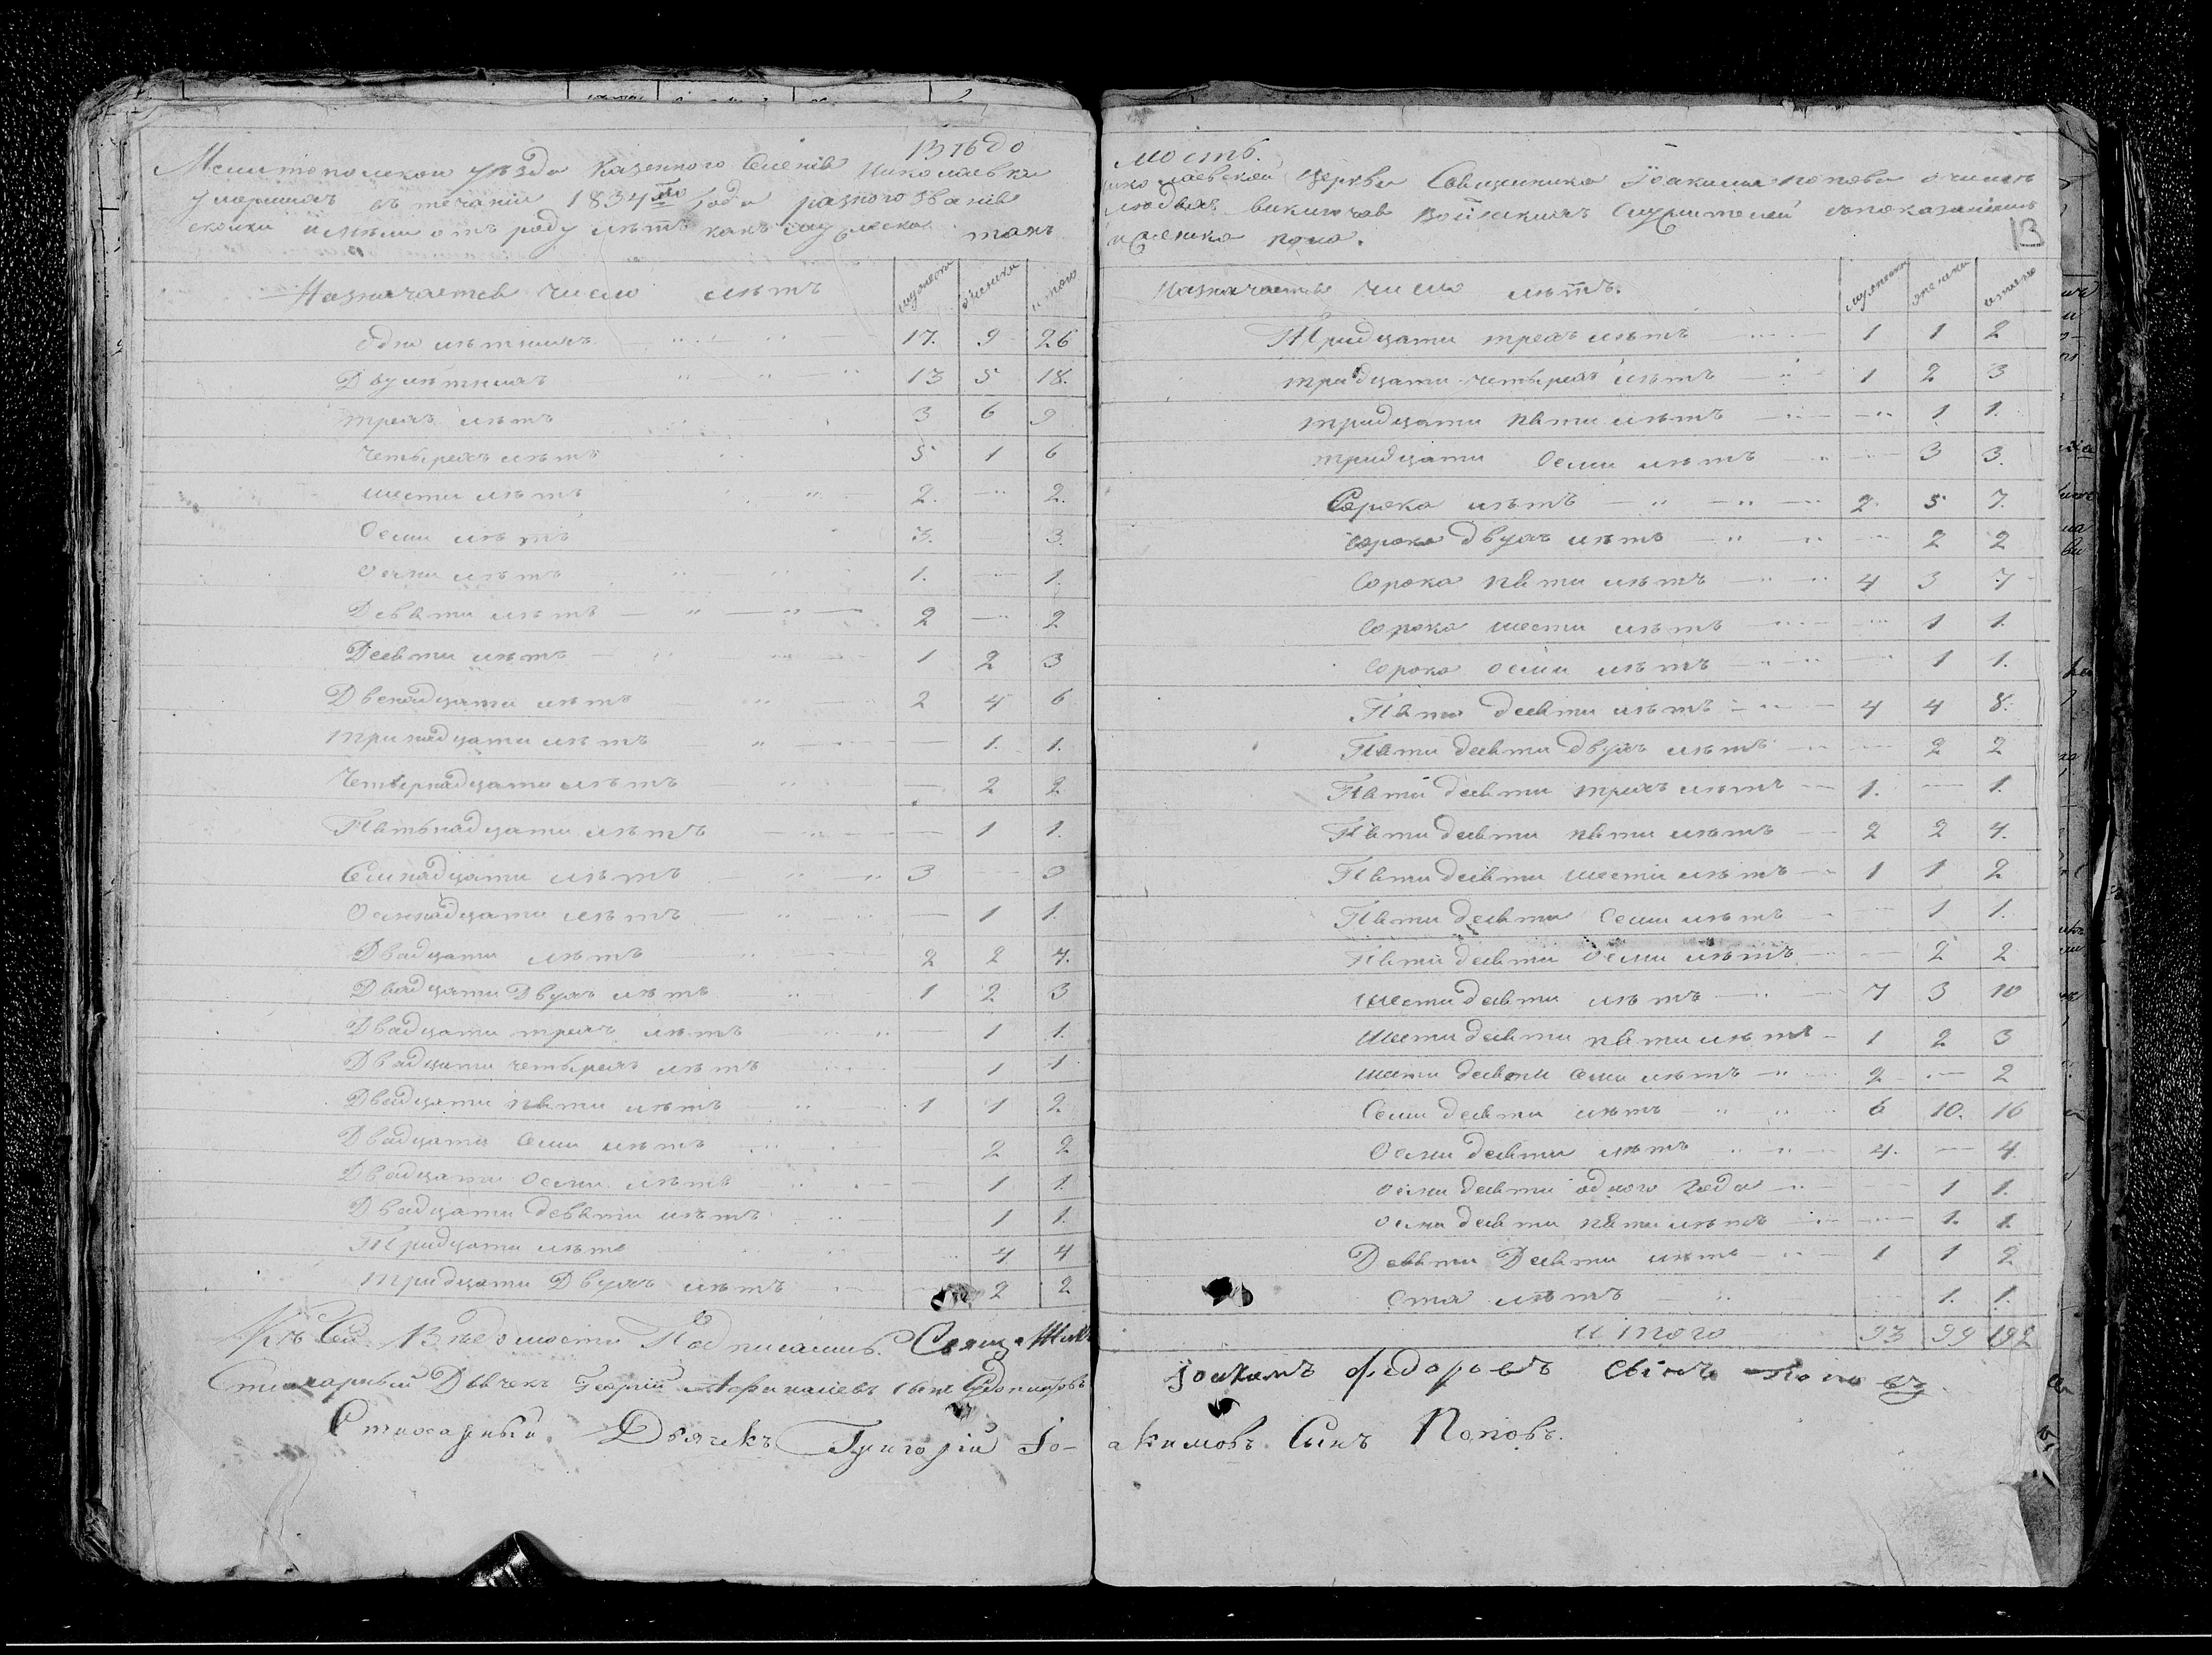 Вѣдо
Мелитополскои уѣзда Казенного Селенія Николаевки
умершихъ въ теченіи 1834го Года разного Званія
сколки ихъ отъ роду лѣтъ какъ мужеска такъ
Назначается число лѣтъ мужеска женска итого
Одно лѣтнихъ 17. 9 26
Двулѣтнихъ 13 5 18.
трехъ лѣтъ 3 6 9
Четырехъ лѣтъ 5 1 6
шести лѣтъ 2. — 2.
Осми лѣтъ 3. 3.
Осми лѣтъ 1. — 1.
Девяти лѣтъ 2 — 2
Десяти лѣтъ 1 2 3
Двенадцати лѣтъ 2 4 6
тринадцати лѣтъ — 1. 1.
Четырнадцати лѣтъ — 2 2
Пятьнадцати лѣтъ — 1 1.
Семнадцати лѣтъ 3 — 3
Осмнадцати лѣтъ — 1 1.
Двадцати лѣтъ 2 2 4.
Двадцати Двухъ лѣтъ 1 2 3
Двадцати трехъ лѣтъ — 1 1.
Двадцати четырехъ лѣтъ 1 1
Двадцати пяти лѣтъ 1 1 2
Двадцати Семи лѣтъ 2 2
Двадцати Осми лѣтъ — 1 1.
Двадцати девяти лѣтъ — 1 1
Тридцати лѣтъ 4 4
тридцати Двухъ лѣтъ 2 2
Къ Сей Вѣдомости Подписались. Священникъ
Стихарный Дьячекъ Георгій Афанасіевъ сынъ
Стихарный Дьячекъ Григорій Іо-
мость.
Николаевской Церкви Священника Іоакима Попова о числѣ
людяхъ виключая Войскихъ Служителей съпоказаніемъ
и женска пола.
13
Назначается число лѣтъ. мужеска женска итого
Тридцати трехъ лѣтъ 1 1 2
тридцати четырехъ лѣтъ 1 2 3
тридцати пяти лѣтъ — 1 1.
тридцати Осми лѣтъ — 3 3.
Сорока лѣтъ 2. 5 7.
Сорока двухъ лѣтъ — 2 2
Сорока пяти лѣтъ 4 3 7
Сорока шести лѣтъ — 1 1.
Сорока осми лѣтъ — 1 1.
Пяти десяти лѣтъ 4 4 8.
Пяти десяти двухъ лѣтъ — 2 2
Пяти десяти трехъ лѣтъ 1. — 1.
Пяти десяти пяти лѣтъ 2 2 4.
Пяти десяти шести лѣтъ 1 1 2
Пяти десяти Семи лѣтъ — 1 1.
Пяти десяти Осми лѣтъ — 2 2
Шести десяти лѣтъ 7 3 10
Шести десяти пяти лѣтъ 1 2 3
шести десяти Семи лѣтъ 2 — 2
Семи десяти лѣтъ 6 10. 16
Осми десяти лѣтъ 4. — 4.
осми десяти одного года — 1 1.
осми десяти пяти лѣтъ — 1. 1.
Девяти Десяти лѣтъ 1 1 2
Ста лѣтъ 1. 1.
Итого 93 99 192
Іоакимъ Федоровъ сынъ Поповъ
акимовъ Сынъ Поповъ.